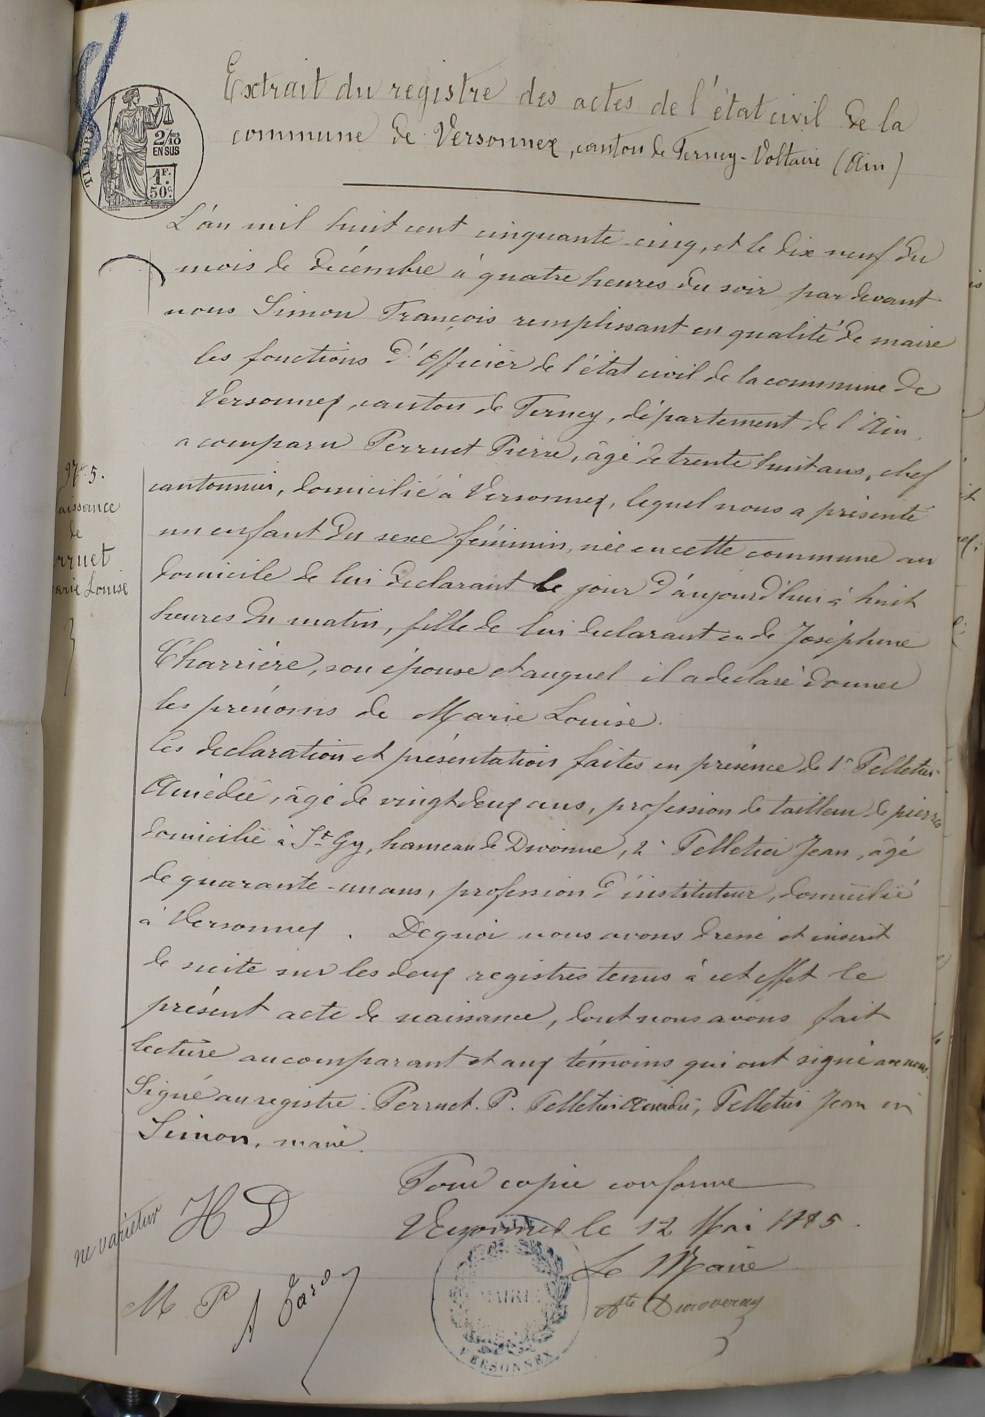 Extrait du registre des actes de l'état civil de la
commune de Versonnex, canton de Ferney-Voltaire (Ain)
2/10
EN SUS
1F.
50c.
L'an mil huit cent cinquante cinq, et le dix neuf du
mois de décembre à quatre heures du soir par devant
nous Simon François remplissant en qualité de maire
les fonctions d'Officier de l'état civil de la commune de
Versonnex, canton de Ferney, département de l'Ain
a comparu Perruet Pierre, âgé de trente huit ans, chef
cantonnier, domicilié à Versonnex, lequel nous a présenté
un enfant du sexe féminin, née en cette commune au
domicile de lui déclarant le jour d'aujourd'hui à huit
heures du matin, fille de lui declarant et de Joséphine
Charrière, son épouse et auquel il a declaré donner
les prénoms de Marie Louise.
Les declaration et présentation faites en présence de 1° Pelletier
Amédée, âgé de vingt deux ans, profession de tailleur de pierre
domicilié à St Gy, hameau de Divonne, 2° Pelletier Jean, âgé
de quarante-un ans, profession d'instituteur, domicilié
à Versonnex. De quoi nous avons dressé et inscrit
de suite sur les deux registres tenus à cet effet le
présent acte de naissance, dont nous avons fait
lecture au comparant et aux témoins qui ont signé avec nous.
Signé au registre: Perruet. P. Pelletier Amédée, Pelletier Jean
Simon, maire.
N° 5.
aissance
de
rruet
arie Louise
Pour copie conforme
Versonnex le 12 Mai 1885.
Le Maire
ne varietur
H D
M P
MAIRIE
VERSONNEX